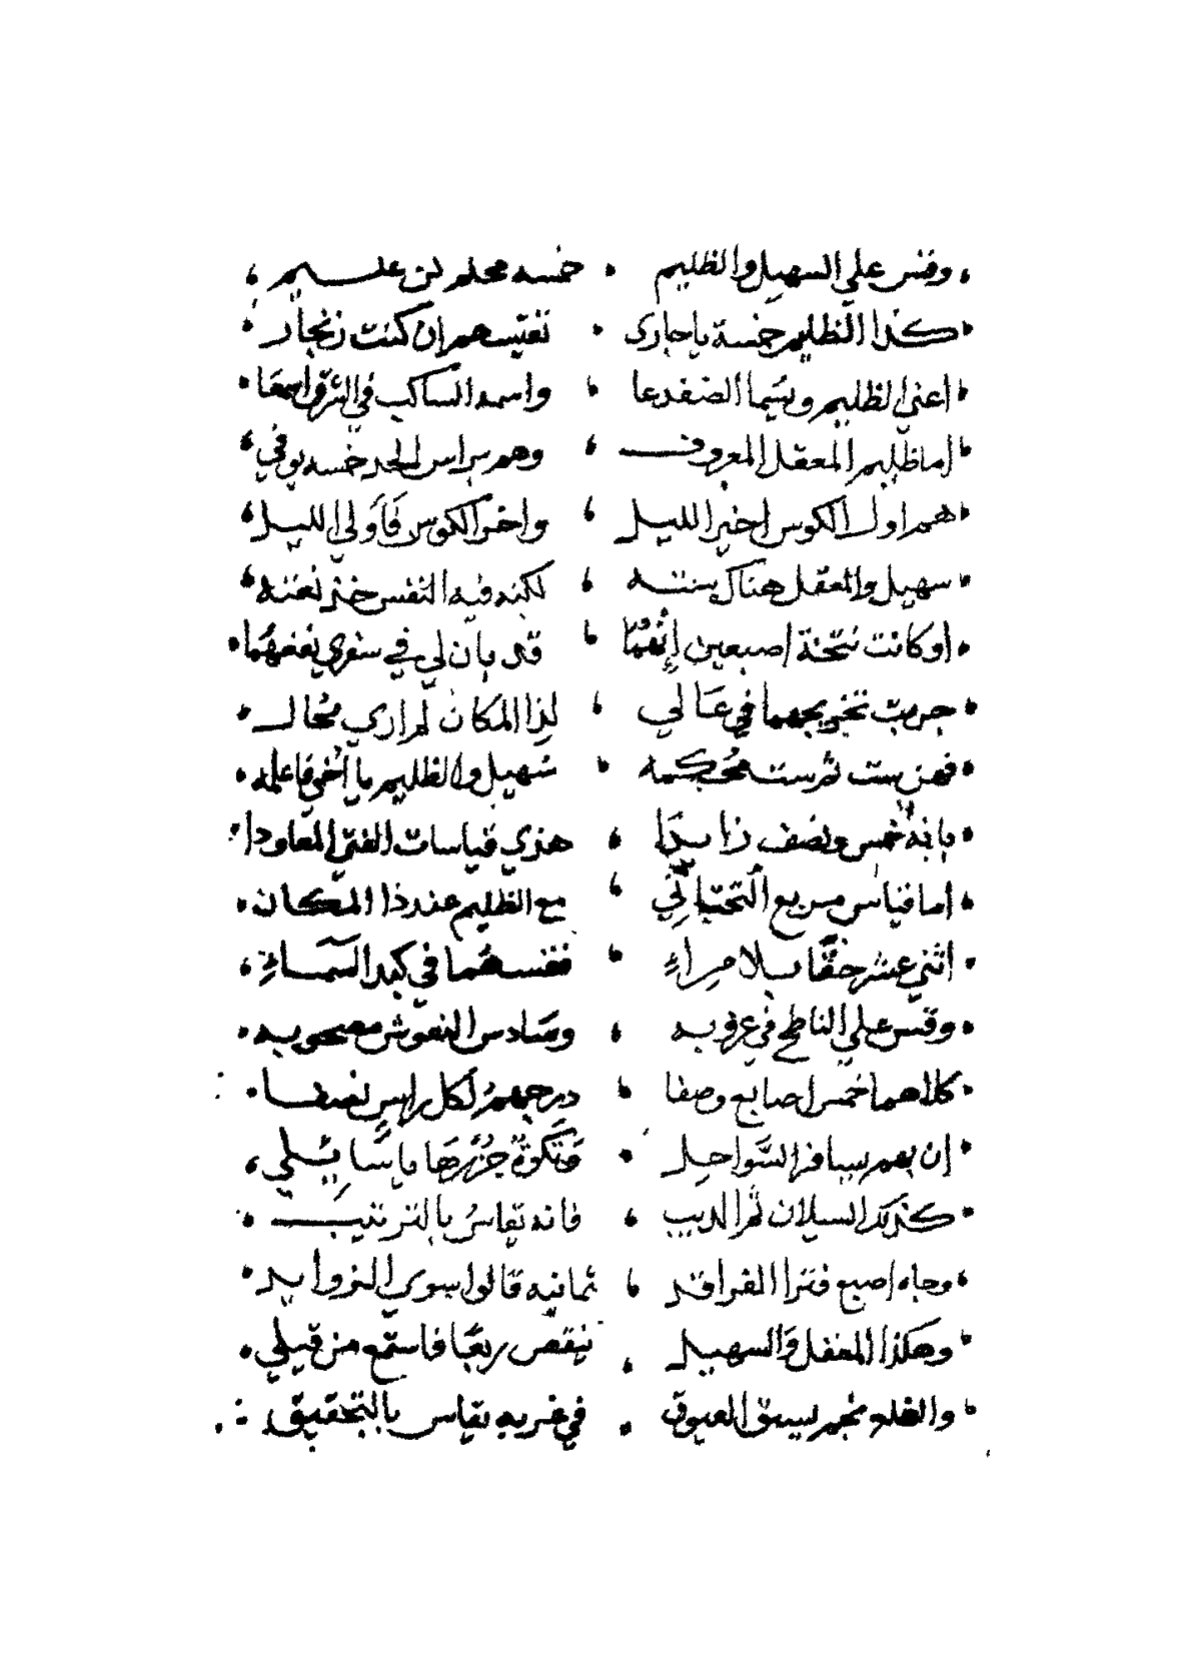 وقس علي السهيل والظليم ، خمسه محلم لن عليم
كذا الظليم خمسة ياجاري ، تقيسهم ان كنت زنجار
اعني الظليم ويسما الضفدعا ، واسمه الساكب في الشرق اسمعا
اما ظليم المعقل المعروف ، وهم براس الحد خمسه يوفي
هم اول الكوس اخير الليل ، واخر الكوس فأولي الليل
سهيل والمعقل هناك بينته ، لكنه فيه النفس حتي نعته
اوكانت نتخة اصبعين إنعما ، قد بان لي في سفري نفعهما
جربت تخريجهما في عالي ، لذا المكان لم اري محال
فهن بيت ثم ست محكمه ، سهيل والظليم يا اخي فاعلمه
بانه خمس ونصف زايدا ، هذي قياسات الفتي المعاودا
اما قياس مربع التحتاني ، مع الظليم عند ذا المكان
اثني عشر حقا بلا مراء ، فقسهما في كبد السماء
وقس علي الناطح في غروبه ، وسادس النعوش مصحوبه
كلاهما خمس اصابع وصفا ، درجهم لكل راس نصفا
إن بهم يسافر السواحل ، جزرها يا سايلي
كذلك السيلان ثم الديب ، فانه تقاس بالترتيب
وجاه اصبع فترا الفراقد ، ثمانيه قالوا سوي الزوايد
وهكذا المعقل والسهيل ، نيقص ربعا فاستمع من قيلي
والقلد نجم يسبق العيوق ، في غربه تقاس بالتحقيق